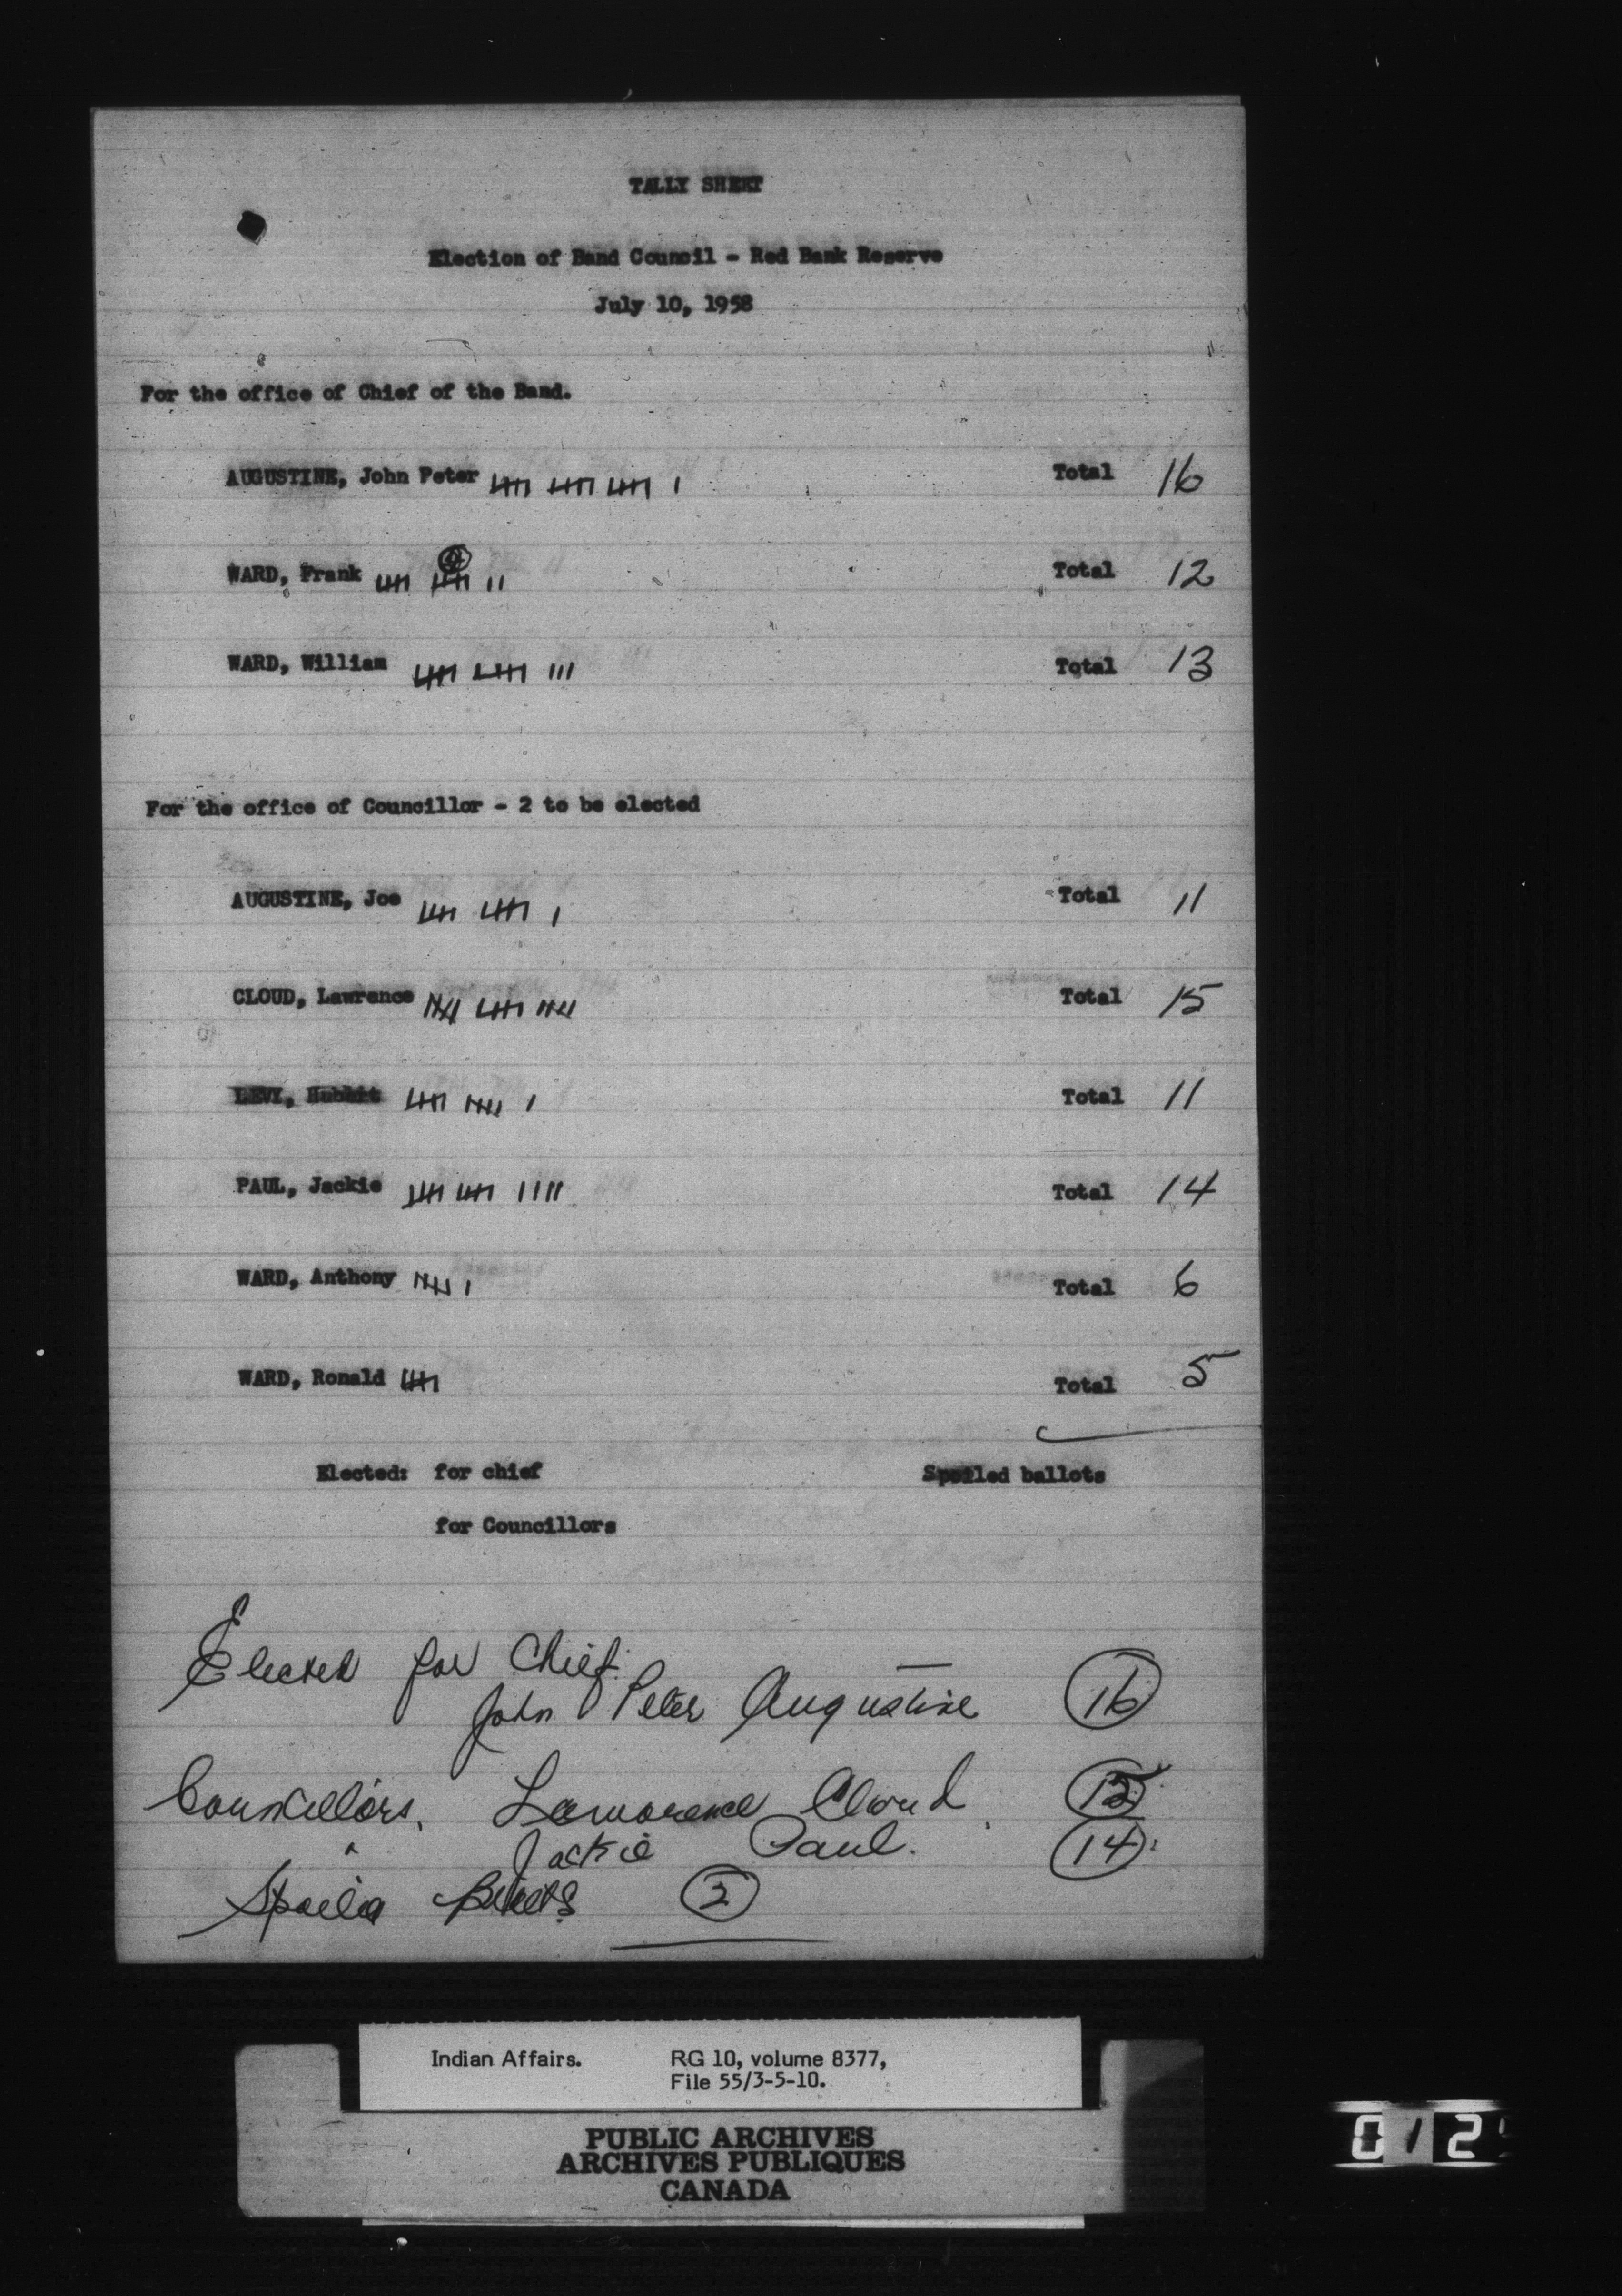 TALLY SHEET
Election of Band Council - Red Bank Reserve
July 10, 1958
For the office of Chief of the Band.
AUGUSTINE, John Peter 卌 卌 卌 I Total 16
WARD, Frank 卌 卌 II Total 12
WARD, William 卌 卌 III Total 13
For the office of Councillor - 2 to be elected
AUGUSTINE, Joe 卌 卌 I Total 11
CLOUD, Lawrence 卌 卌 卌 Total 15
LEVY, Hubert 卌 卌 I Total 11
PAUL, Jackie 卌 卌 IIII Total 14
WARD, Anthony 卌 I Total 6
WARD, Ronald 卌 Total 5
Elected: for chief Spoiled ballots
for Councillors
Elected for Chief.
John Peter Augustine 16
Councillors, Lawrence Cloud 15
" Jackie Paul. 14
2
Indian Affairs. RG 10, volume 8377,
File 55/3-5-10.
PUBLIC ARCHIVES
ARCHIVES PUBLIQUES
CANADA
0 1 2